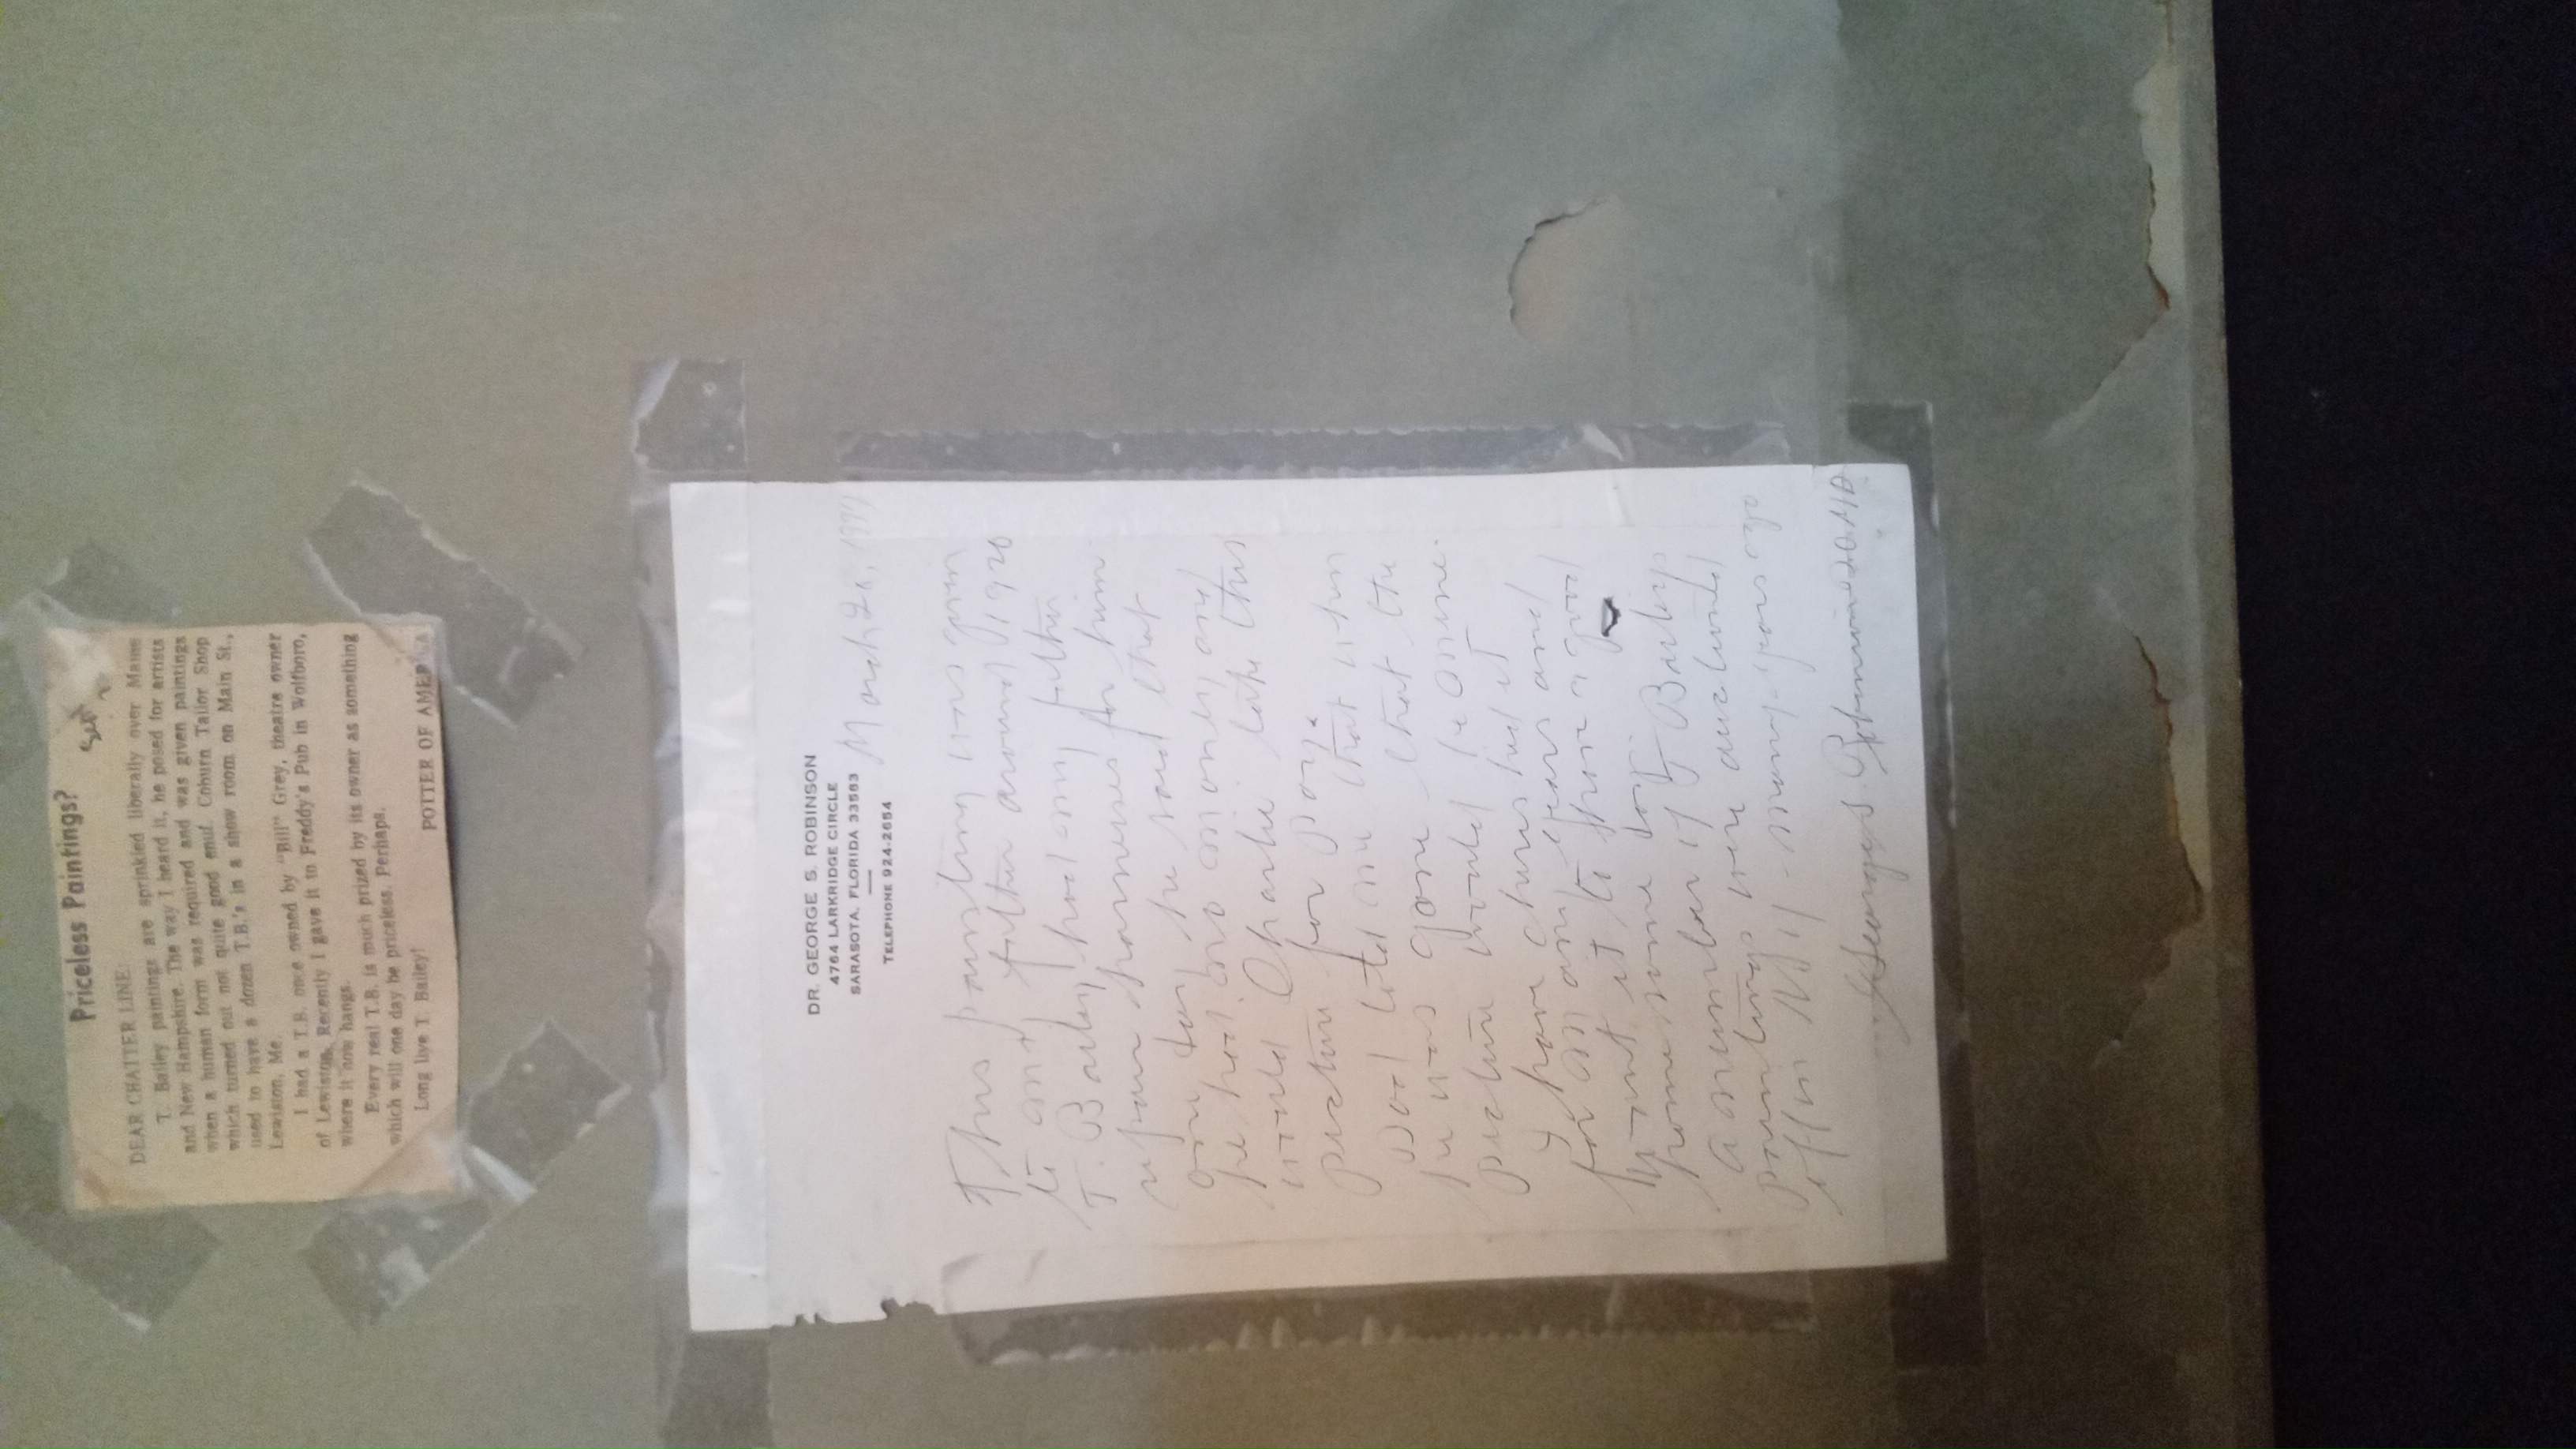 Priceless Paintings?
DEAR CHATTER LINE:
T. Bailey paintings are sprinkled liberally over Maine
and New Hampshire. The way I heard it, he posed for artists
when a human form was required and was given paintings
which turned out not quite good enuf. Coburn Tailor Shop
used to have a dozen T.B.'s in a show room on Main St.,
Lewiston, Me.
I had a T.B. once owned by "Bill" Grey, theatre owner
of Lewiston. Recently I gave it to Freddy's Pub in Wolfboro,
where it now hangs.
Every real T.B. is much prized by its owner as something
which will one day be priceless. Perhaps.
Long live T. Bailey!
POTTER OF AMERICA
DR. GEORGE S. ROBINSON
4764 LARKRIDGE CIRCLE
SARASOTA, FLORIDA 33583
TELEPHONE 924-2654
March 26,
This painting was given
to my father around 1920
T. Bailey had my father
repair harnesses for him.
One day he said that
he had no money and
would Charlie take this
picture for pay.
Dad told me that when
he was gone that the
picture would be mine.
I have always had it
for many years and
want it to have a good
home some day.
a number of T Bailey
paintings were auctioned
off in NH - many years ago
George S. Robinson